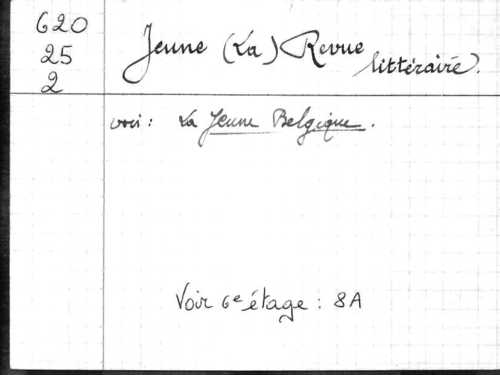 620
25
2
Jeune (La) Revue
littéraire.
voir : La Jeune Belgique.
Voir 6e étage : 8A